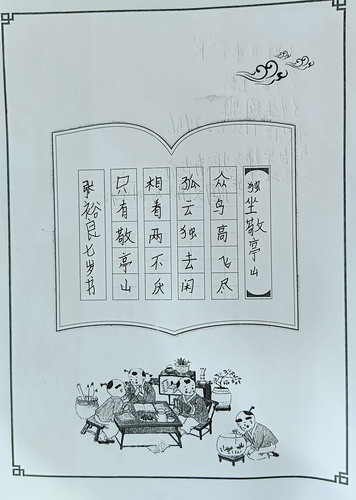 独坐敬亭山
众鸟高飞尽
孤云独去闲
相看两不厌
只有敬亭山
耿裕良七岁书